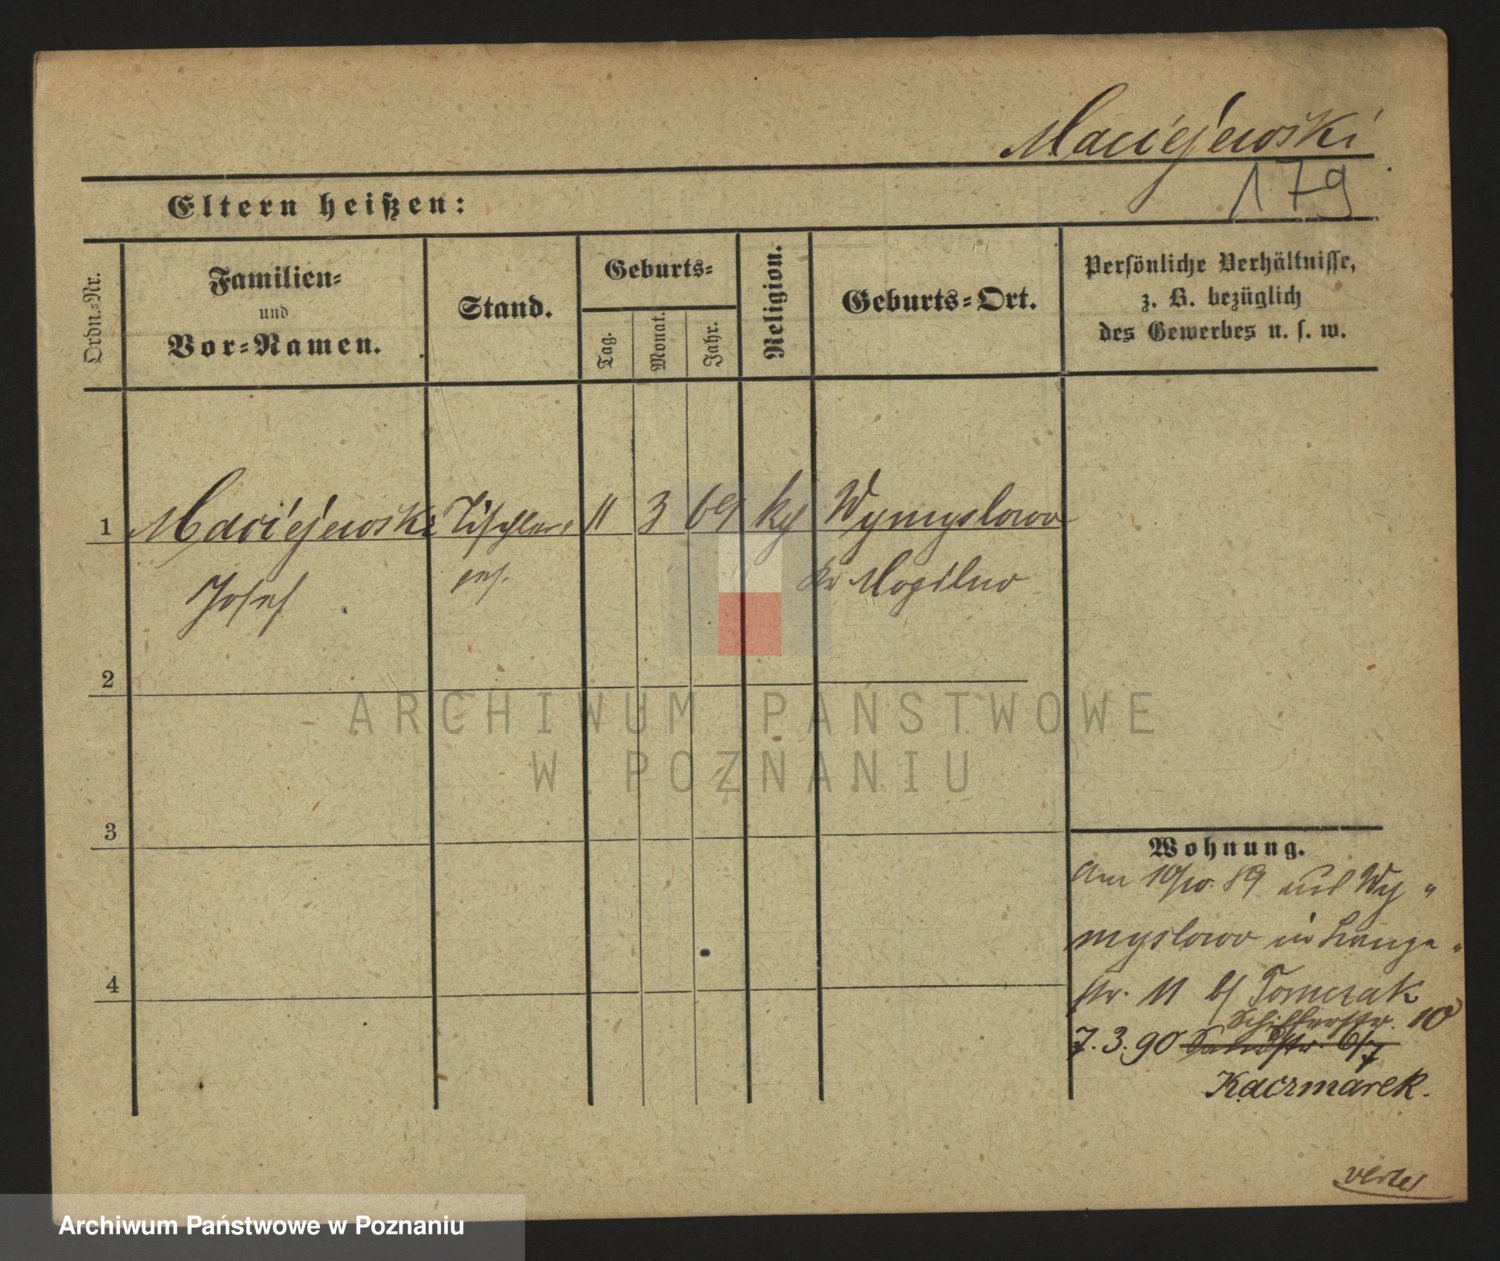 Maciejewski
179
Eltern heißen:
Ordn.-Nr.
Familien-
und
Vor-Namen.
Stand.
Geburts-
Tag.
Monat.
Jahr.
Religion.
Geburts-Ort.
Persönliche Verhältnisse,
z. B. bezüglich
des Gewerbes u. s. w.
1 Maciejewski Tischler 11 3 69 kg Wymyslowo
Josef ges. Kr Mogilno
2
3
4
Wohnung.
Am 10/10. 89 aus Wy
myslowo in Lange
str. 11 b/ Tomczak
Schifferstr. 10
7.3.90 Sandstr. 6/7
Kaczmarek.
ARCHIWUM PAŃSTWOWE
W POZNANIU
Archiwum Państwowe w Poznaniu